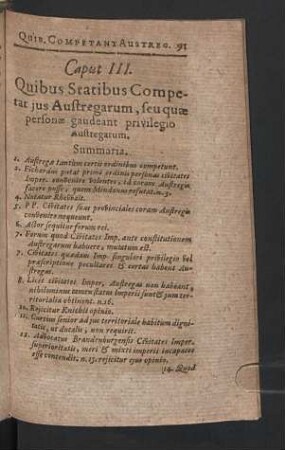 QUIB. COMPETANT AUSTREG. 91
Caput III.
Quibus Statibus Compe-
tat jus Austregarum, seu quæ
personæ gaudeant privilegio
Austregarum.
Summaria.
1. Austregæ tantùm certis ordinibus competunt.
2. Fichardus putat primi ordinis personas civitates
Imper. convenire volentes, id coram Austregis
facere posse, quem Mindanus refutat. n. 3.
4. Notatur Rhetibait.
5. PP. Civitates suas provinciales coram Austregis
convenire nequeunt.
6. Actor sequitur forum rei.
7. Forum quod Civitates Imp. ante constitutionem
Austregarum habuere, mutatum est.
7. Civitates quædam Imp. singulari privilegio vel
præscriptione peculiares & certas habent Au-
stregas.
8. Licet civitates Imper. Austregas non habeant,
nihilominus tamen status Imperii sunt & jura ter-
ritorialia obtinent. n. 16.
10. Rejicitur Knichii opinio.
11. Curtius senior ad jus territoriale habitum digni-
tatis, ut ducalis, non requirit.
12. Advocatus Brandenburgensis Civitates Imper.
superioritatis, meri & mixti imperii incapaces
esse contendit. n. 13. rejicitur ejus opinio.
14. Quod